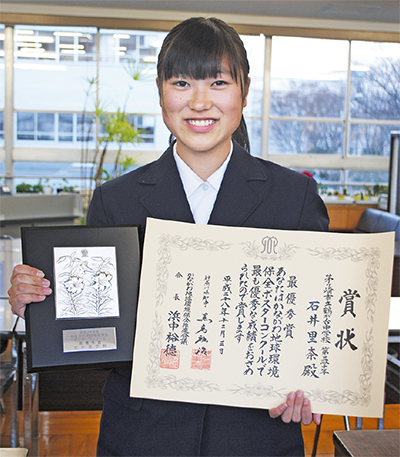 賞状
茅ヶ崎市立鶴が台中学校
石井里奈殿
最優秀賞
あなたはかながわ地球環境
保全ポスターコンクールで
最も優秀な成績をおさめ
られたので賞します
平成二十八年十二月
神奈川県知事 黒岩祐治
かながわ地球環境保全推進会議
会長 浜中裕徳